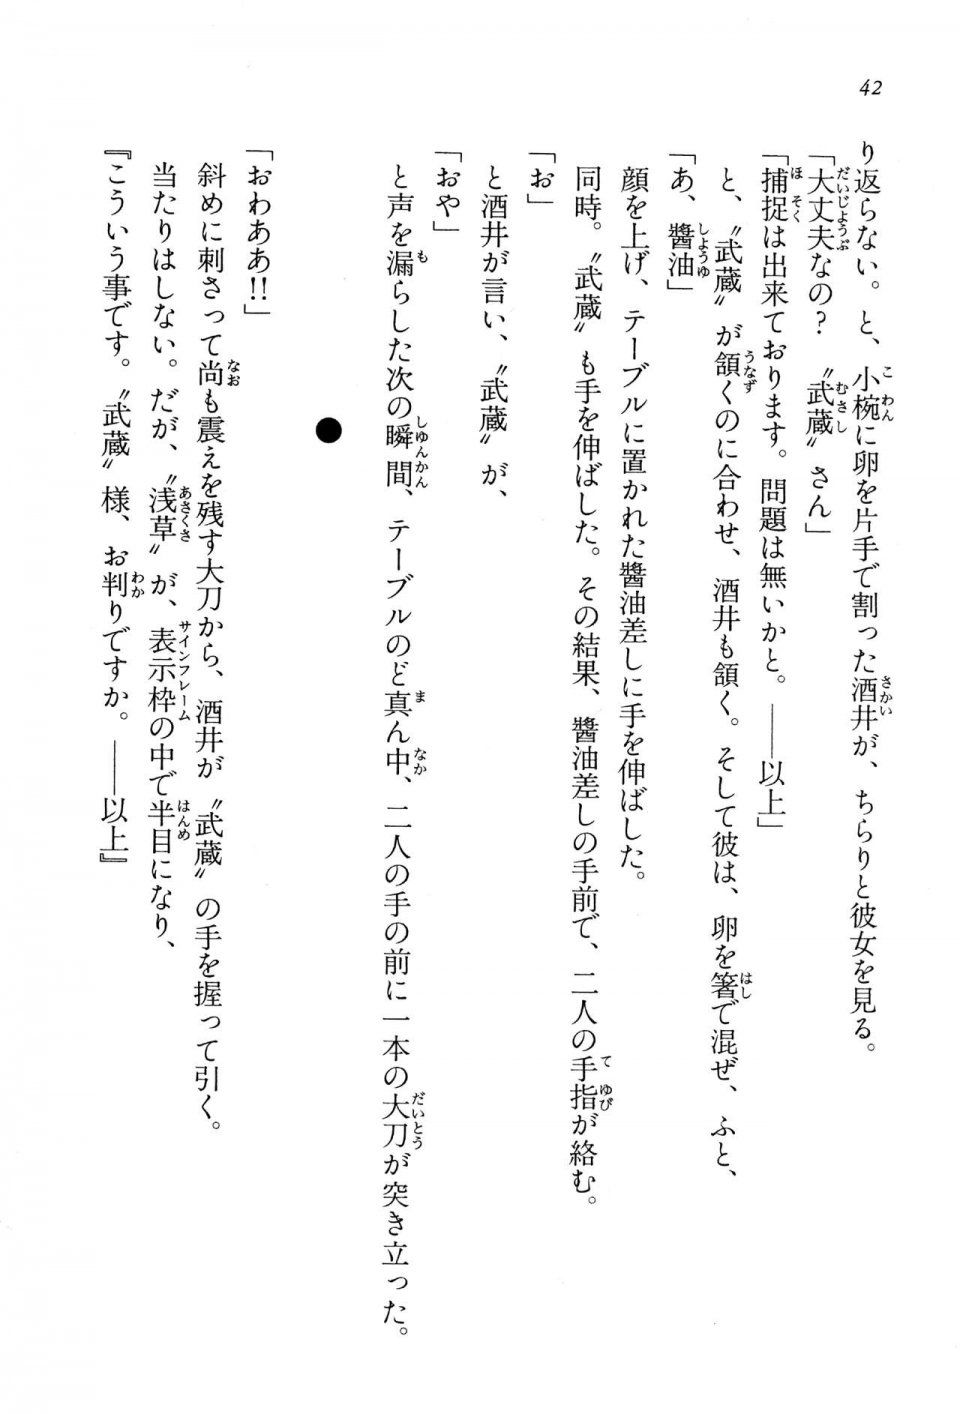 42
り返らない。と、小椀に卵を片手で割った酒井が、ちらりと彼女を見る。
「大丈夫なの？　〝武蔵〟さん」
「捕捉は出来ております。問題は無いかと。――以上」
と、〝武蔵〟が頷くのに合わせ、酒井も頷く。そして彼は、卵を箸で混ぜ、ふと、
「あ、醬油」
顔を上げ、テーブルに置かれた醬油差しに手を伸ばした。
同時。〝武蔵〟も手を伸ばした。その結果、醬油差しの手前で、二人の手指が絡む。
「お」
と酒井が言い、〝武蔵〟が、
「おや」
と声を漏らした次の瞬間、テーブルのど真ん中、二人の手の前に一本の大刀が突き立った。
●
「おわああ!!」
斜めに刺さって尚も震えを残す大刀から、酒井が〝武蔵〟の手を握って引く。
当たりはしない。だが、〝浅草〟が、表示枠の中で半目になり、
『こういう事です。〝武蔵〟様、お判りですか。――以上』